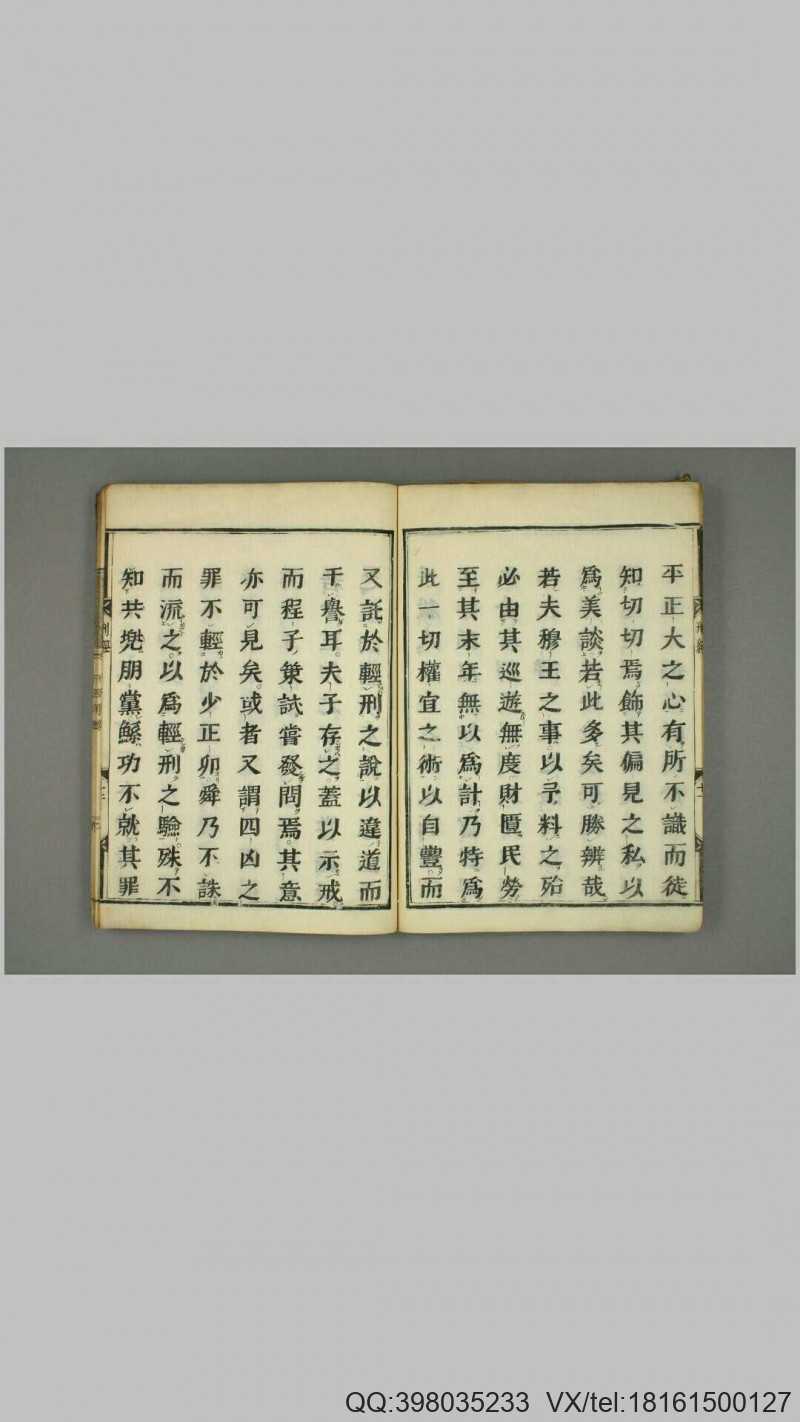 平正大之心有所不識而徒
知切切焉飾其偏見之私以
爲美談若此多矣可勝辨哉
若夫穆王之事以予料之殆
必由其巡遊無度財匱民勞
至其末年無以爲計乃特爲
此一切權宜之術以自豐而
又託於輕刑之說以違道而
干譽耳夫子存之蓋以示戒
而程子策試嘗發問焉其意
亦可見矣或者又謂四凶之
罪不輕於少正卯舜乃不誅
而流之以爲輕刑之驗殊不
知共兠朋黨鯀功不就其罪
QQ:398035233 VX/tel:18161500127